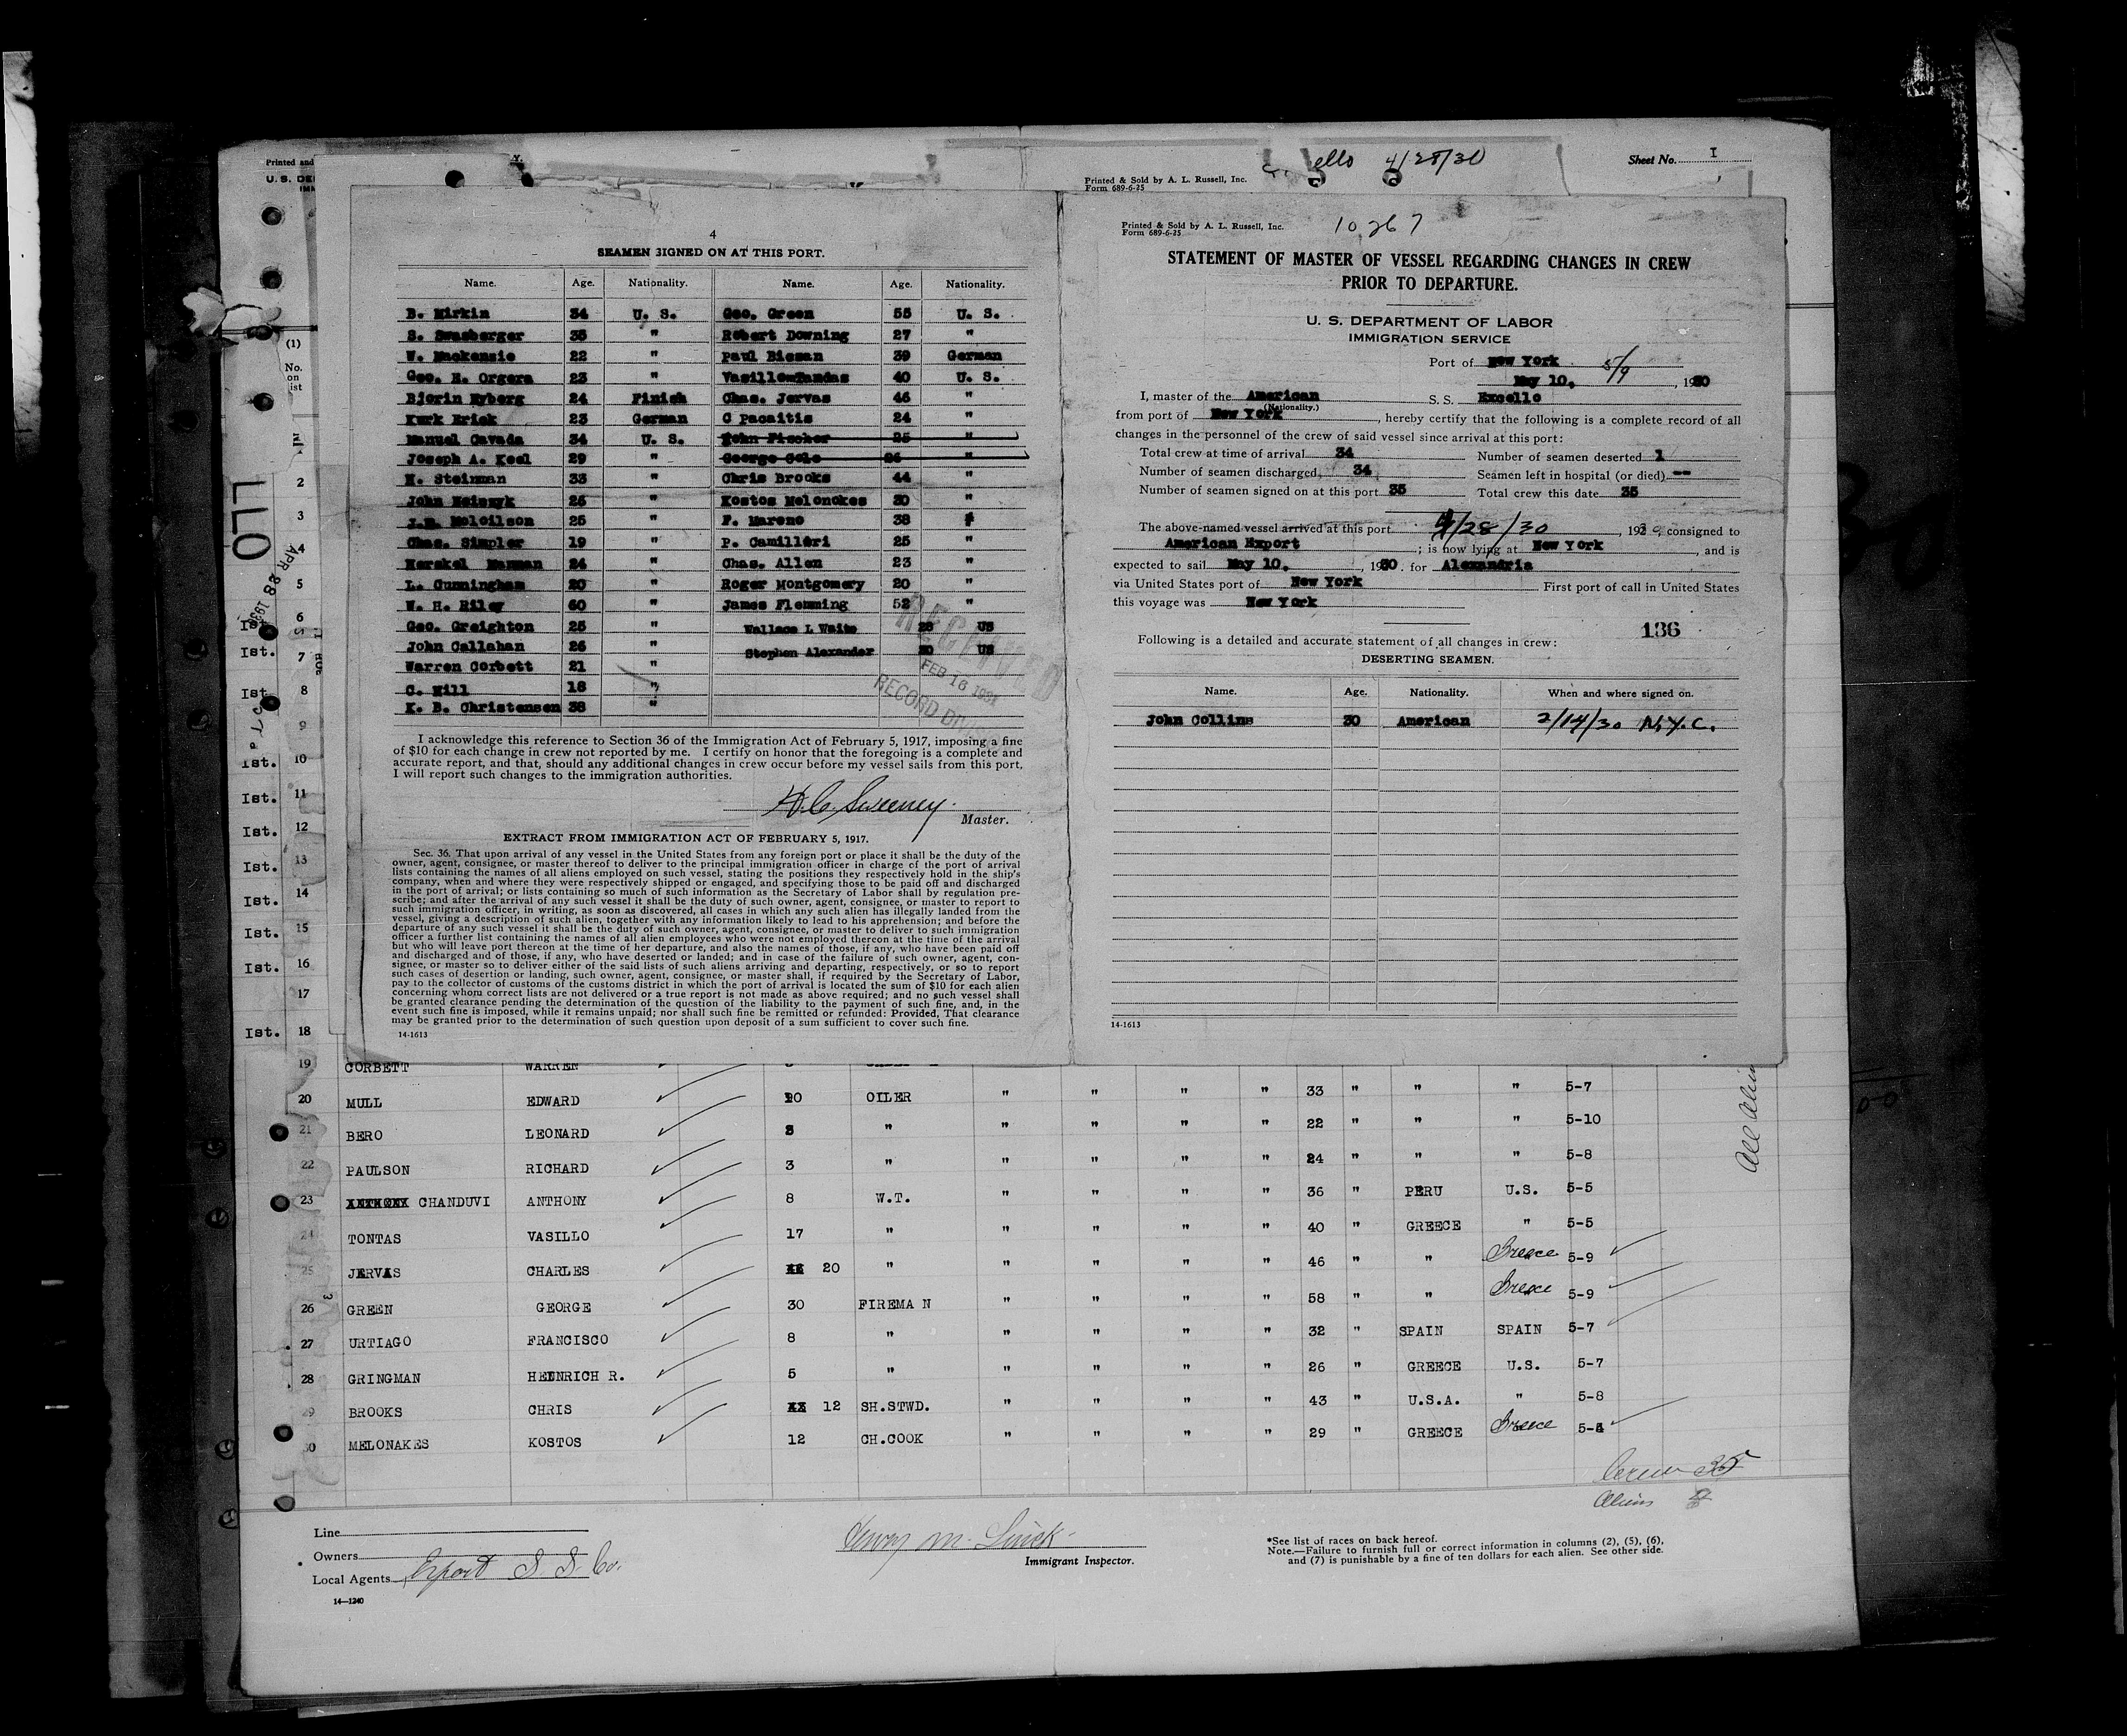 Printed and
U. S. DE
IMM
ello 4/28/30
Printed & Sold by A. L. Russell, Inc.
Form 689-6-25
Sheet No. I
4
SEAMEN SIGNED ON AT THIS PORT.
Name. Age. Nationality. Name. Age. Nationality.
B. Mirkin 34 U. S. Geo. Green 55 U. S.
S. Swasberger 35 " Robert Downing 27 "
W. Mackenzie 22 " Paul Bieman 39 German
Geo. H. Orgera 23 " Vasillo Tandas 40 U. S.
Bjorin Nyberg 24 Finish Chas. Jervas 46 "
Kurk Erick 23 German C Pacaitis 24 "
Manuel Cavada 34 U. S. John Fischer 25 "
Joseph A. Keel 29 " George Cole 26 "
N. Steinman 33 " Chris Brooks 44 "
John 26 " Kostos Melonokes 30 "
25 " F. Mareno 38 "
Chas. Simpler 19 " P. Camilleri 25 "
Herskel 24 " Chas. Allen 23 "
L. Cunningham 20 " Roger Montgomery 20 "
W. H. Riley 60 " James Flemming 52 "
Geo. Creighton 25 " Wallace L Waite 28 US
John Callahan 26 " Stephen Alexander 30 US
Warren Corbett 21 "
C. Hill 18 "
K. B. Christensen 38 "
RECEIVED
FEB 16 1931
RECORD DIV
I acknowledge this reference to Section 36 of the Immigration Act of February 5, 1917, imposing a fine
of $10 for each change in crew not reported by me. I certify on honor that the foregoing is a complete and
accurate report, and that, should any additional changes in crew occur before my vessel sails from this port,
I will report such changes to the immigration authorities.
H. C. Sweeney.
Master.
EXTRACT FROM IMMIGRATION ACT OF FEBRUARY 5, 1917.
Sec. 36. That upon arrival of any vessel in the United States from any foreign port or place it shall be the duty of the
owner, agent, consignee, or master thereof to deliver to the principal immigration officer in charge of the port of arrival
lists containing the names of all aliens employed on such vessel, stating the positions they respectively hold in the ship's
company, when and where they were respectively shipped or engaged, and specifying those to be paid off and discharged
in the port of arrival; or lists containing so much of such information as the Secretary of Labor shall by regulation pre-
scribe; and after the arrival of any such vessel it shall be the duty of such owner, agent, consignee, or master to report to
such immigration officer, in writing, as soon as discovered, all cases in which any such alien has illegally landed from the
vessel, giving a description of such alien, together with any information likely to lead to his apprehension; and before the
departure of any such vessel it shall be the duty of such owner, agent, consignee, or master to deliver to such immigration
officer a further list containing the names of all alien employees who were not employed thereon at the time of the arrival
but who will leave port thereon at the time of her departure, and also the names of those, if any, who have been paid off
and discharged and of those, if any, who have deserted or landed; and in case of the failure of such owner, agent, con-
signee, or master so to deliver either of the said lists of such aliens arriving and departing, respectively, or so to report
such cases of desertion or landing, such owner, agent, consignee, or master shall, if required by the Secretary of Labor,
pay to the collector of customs of the customs district in which the port of arrival is located the sum of $10 for each alien
concerning whom correct lists are not delivered or a true report is not made as above required; and no such vessel shall
be granted clearance pending the determination of the question of the liability to the payment of such fine, and, in the
event such fine is imposed, while it remains unpaid; nor shall such fine be remitted or refunded: Provided, That clearance
may be granted prior to the determination of such question upon deposit of a sum sufficient to cover such fine.
14-1613
Printed & Sold by A. L. Russell, Inc.
Form 689-6-25
10267
STATEMENT OF MASTER OF VESSEL REGARDING CHANGES IN CREW
PRIOR TO DEPARTURE.
U. S. DEPARTMENT OF LABOR
IMMIGRATION SERVICE
Port of New York
May 10, 5/9, 1930
I, master of the American S. S. Excello
(Nationality.)
from port of New York, hereby certify that the following is a complete record of all
changes in the personnel of the crew of said vessel since arrival at this port:
Total crew at time of arrival 34 Number of seamen deserted 1
Number of seamen discharged 34 Seamen left in hospital (or died) --
Number of seamen signed on at this port 35 Total crew this date 35
The above-named vessel arrived at this port 4/28/30, 1930, consigned to
American Export; is now lying at New York, and is
expected to sail May 10, 1930. for Alexandria
via United States port of New York First port of call in United States
this voyage was New York
136
Following is a detailed and accurate statement of all changes in crew:
DESERTING SEAMEN.
Name. Age. Nationality. When and where signed on.
John Collins 30 American 2/14/30 N.Y.C.
14-1613
(1)
No.
on
ist
LLO
APR 28 1930
2
3
4
5
Ist. 6
Ist. 7
Ist 8
9
Ist. 10
Ist. 11
Ist. 12
Ist. 13
Ist. 14
Ist. 15
Ist. 16
17
Ist. 18
19 CORBETT WARREN
20 MULL EDWARD 20 OILER " " " " 33 " " " 5-7
21 BERO LEONARD 3 " " " " " 22 " " " 5-10
22 PAULSON RICHARD 3 " " " " " 24 " " " 5-8
23 ANTHONY CHANDUVI ANTHONY 8 W.T. " " " " 36 " PERU U.S. 5-5
24 TONTAS VASILLO 17 " " " " " 40 " GREECE " 5-5
25 JERVAS CHARLES 20 " " " " " 46 " " Greece 5-9
26 GREEN GEORGE 30 FIREMA N " " " " 58 " " Greece 5-9
27 URTIAGO FRANCISCO 8 " " " " " 32 " SPAIN SPAIN 5-7
28 GRINGMAN HEINRICH R. 5 " " " " " 26 " GREECE U.S. 5-7
29 BROOKS CHRIS 12 SH.STWD. " " " " 43 " U.S.A. " 5-8
30 MELONAKES KOSTOS 12 CH.COOK " " " " 29 " GREECE Greece 5-4
Crew 35
Aliens
Line
Owners
Local Agents Export S. S. Co.
14—1240
Immigrant Inspector.
*See list of races on back hereof.
Note.—Failure to furnish full or correct information in columns (2), (5), (6),
and (7) is punishable by a fine of ten dollars for each alien. See other side.